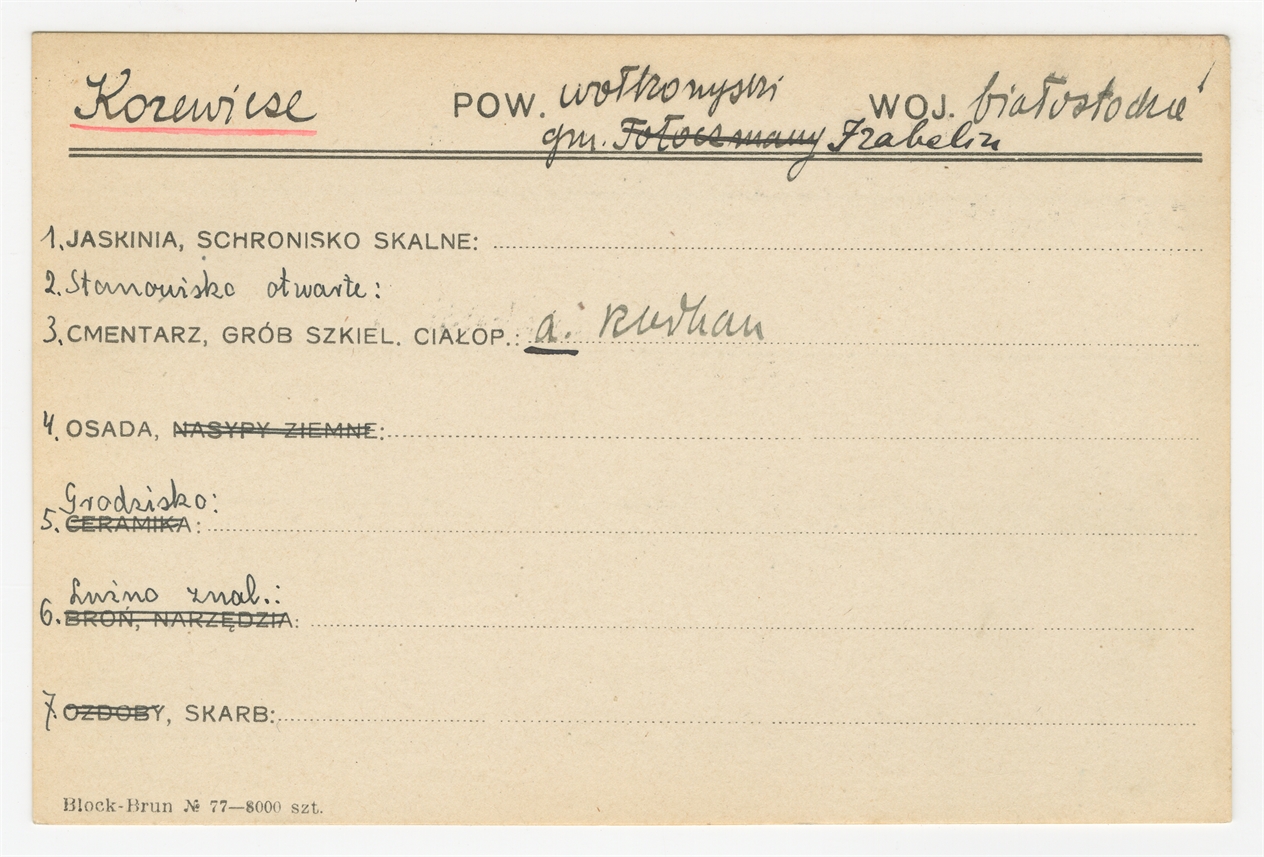 Korewicze POW. wołkowyski WOJ. białostockie
gm. Izabelin
1. JASKINIA, SCHRONISKO SKALNE:
2. Stanowisko otwarte:
3. CMENTARZ, GRÓB SZKIEL. CIAŁOP.: a. kurhan
4. OSADA, NASYPY ZIEMNE:
Grodzisko:
5. CERAMIKA:
Luźno znal.:
6. BROŃ, NARZĘDZIA:
7. OZDOBY, SKARB:
Block-Brun № 77—8000 szt.